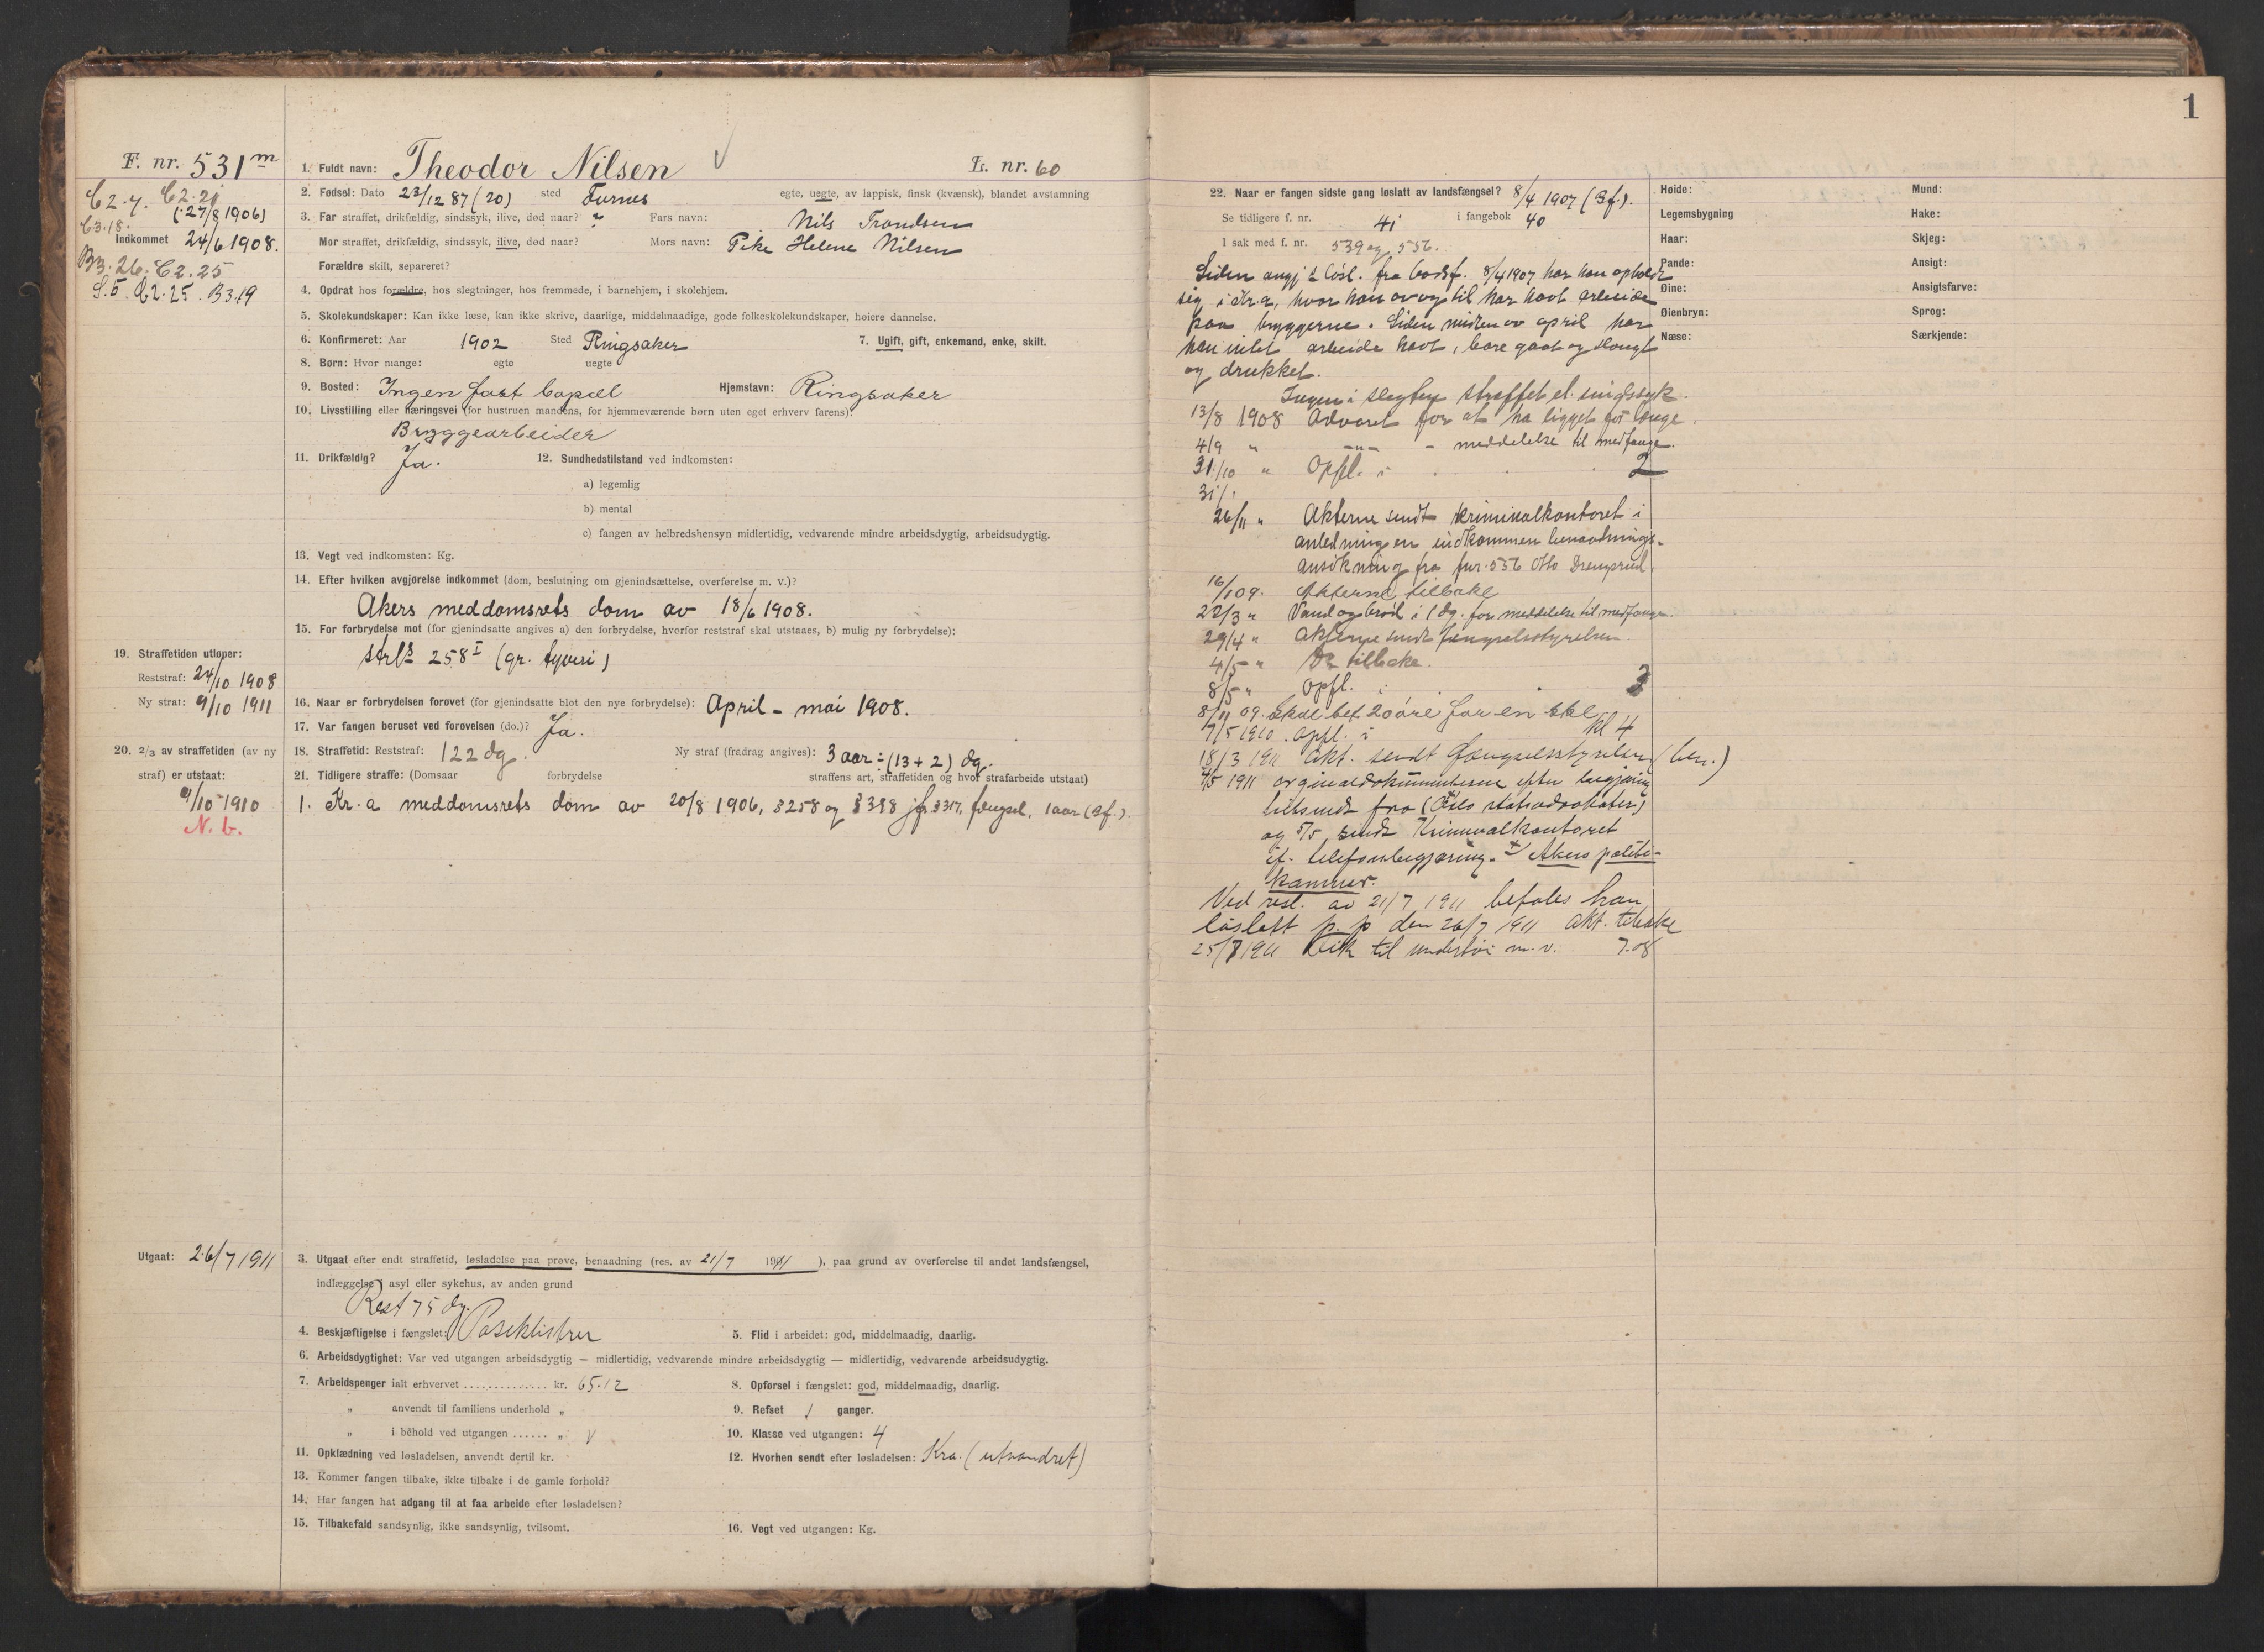 F. nr. 531 m
C2.7. C2.21
(27/8 1906)
C3.18.
Indkommet 24/6 1908.
B3.26. C2.25
S.5. C2.25. B3.19
1. Fuldt navn: Theodor Nilsen L. nr. 60
2. Fødsel: Dato 23/12 87 (20) sted Furnes egte, uegte, av lappisk, finsk (kvænsk), blandet avstamning
3. Far straffet, drikfældig, sindssyk, ilive, død naar? Fars navn: Nils Trondsen
Mor straffet, drikfældig, sindssyk, ilive, død naar? Mors navn: Helene Nilsen
Forældre skilt, separeret?
4. Opdrat hos forældre, hos slegtninger, hos fremmede, i barnehjem, i skolehjem.
5. Skolekundskaper: Kan ikke læse, kan ikke skrive, daarlige, middelmaadige, gode folkeskolekundskaper, høiere dannelse.
6. Konfirmeret: Aar 1902 Sted Ringsaker 7. Ugift, gift, enkemand, enke, skilt.
8. Børn: Hvor mange: egte uegte
9. Bosted: Ingen fast bopæl Hjemstavn: Ringsaker
10. Livsstilling eller næringsvei (for hustruen mandens, for hjemmeværende børn uten eget erhverv farens):
Bryggearbeider
11. Drikfældig? Ja. 12. Sundhedstilstand ved indkomsten:
a) legemlig
b) mental
c) fangen av helbredshensyn midlertidig, vedvarende mindre arbeidsdygtig, arbeidsudygtig.
13. Vegt ved indkomsten: Kg.
14. Efter hvilken avgjørelse indkommet (dom, beslutning om gjenindsættelse, overførelse m. v.)?
Akers meddomsrets dom av 18/6 1908.
15. For forbrydelse mot (for gjenindsatte angives a) den forbrydelse, hvorfor reststraf skal utstaaes, b) mulig ny forbrydelse):
strls 258 I (gr. tyveri)
19. Straffetiden utløper:
Reststraf: 24/10 1908
Ny straf: 9/10 1911
16. Naar er forbrydelsen forøvet (for gjenindsatte blot den nye forbrydelse): April - mai 1908.
17. Var fangen beruset ved forøvelsen (do.)? Ja.
20. 2/3 av straffetiden (av ny straf) er utstaat:
9/10 1910
N. b.
18. Straffetid: Reststraf: 122 dg. Ny straf (fradrag angives): 3 aar ÷ (13 + 2) dg.
21. Tidligere straffe: (Domsaar forbrydelse straffens art, straffetiden og hvor strafarbeide utstaat)
1. Kr.a meddomsrets dom av 20/8 1906, § 258 og § 398 jfr. § 317, fængsel, 1 aar (Bf.).
Utgaat: 26/7 1911
3. Utgaat efter endt straffetid, løsladelse paa prøve, benaadning (res. av 21/7 1911 ), paa grund av overførelse til andet landsfængsel,
indlæggelse i asyl eller sykehus, av anden grund
Rest 75 dg.
4. Beskjæftigelse i fængslet: Poseklistrer 5. Flid i arbeidet: god, middelmaadig, daarlig.
6. Arbeidsdygtighet: Var ved utgangen arbeidsdygtig — midlertidig, vedvarende mindre arbeidsdygtig — midlertidig, vedvarende arbeidsudygtig.
7. Arbeidspenger ialt erhvervet .............. kr. 65.12 8. Opførsel i fængslet: god, middelmaadig, daarlig.
„ anvendt til familiens underhold „ 9. Refset 1 ganger.
„ i behold ved utgangen ...... „ 10. Klasse ved utgangen: 4
11. Opklædning ved løsladelsen, anvendt dertil kr. 12. Hvorhen sendt efter løsladelsen: Kra. (utvandret)
13. Kommer fangen tilbake, ikke tilbake i de gamle forhold?
14. Har fangen hat adgang til at faa arbeide efter løsladelsen?
15. Tilbakefald sandsynlig, ikke sandsynlig, tvilsomt. 16. Vegt ved utgangen: Kg.
1
22. Naar er fangen sidste gang løslatt av landsfængsel? 8/4 1907 (Bf.).
Se tidligere f. nr. 41 i fangebok 40
I sak med f. nr. 539 og 556.
Siden løsl. fra bodsf. 8/4 1907 har han opholdt
sig i Kr.a, hvor han av og til har havt arbeide
paa bryggerne. Siden midten av april har
han intet arbeide havt, bare gaat og slængt
og drukket.
Ingen i slegten straffet el. sindssyk.
13/8 1908 Advaret for at ha ligget for længe.
4/9 " -"- - meddelelse til medfange.
31/10 " Opfl. i 2
31/1
26/11 " Akterne sendt kriminalkontoret i
anledning en indkommen benaadnings-
ansökning fra fnr. 556 Otto
16/1 09. Akterne tilbake
22/3 " Vand og brød i 1 dg. for meddelelse til medfange.
29/4 " Akterne sendt fængselsstyrelsen.
4/5 " Do tilbake.
8/5 " Opfl. i 3
8/11 09. skal bet 20 öre for en
7/5 1910. Opfl. i kl 4
18/3 1911 Akt. sendt Fængselsstyrelsen (ben.)
4/5 1911 orginaldokumenterne efter begjæring
tilsendt fra (Oslo statsadvokater)
og 5/5 sendt Kriminalkontoret
ef. telefonbegjæring. x) Akers politi-
kammer.
Ved resl. av 21/7 1911 befales han
løslatt p. p den 26/7 1911 Akt. tilbake
25/7 1911 til undertöi m. v. 7.08
Høide:
Legemsbygning
Haar:
Pande:
Øine:
Øienbryn:
Næse:
Mund:
Hake:
Skjeg:
Ansigt:
Ansigtsfarve:
Sprog:
Særkjende: